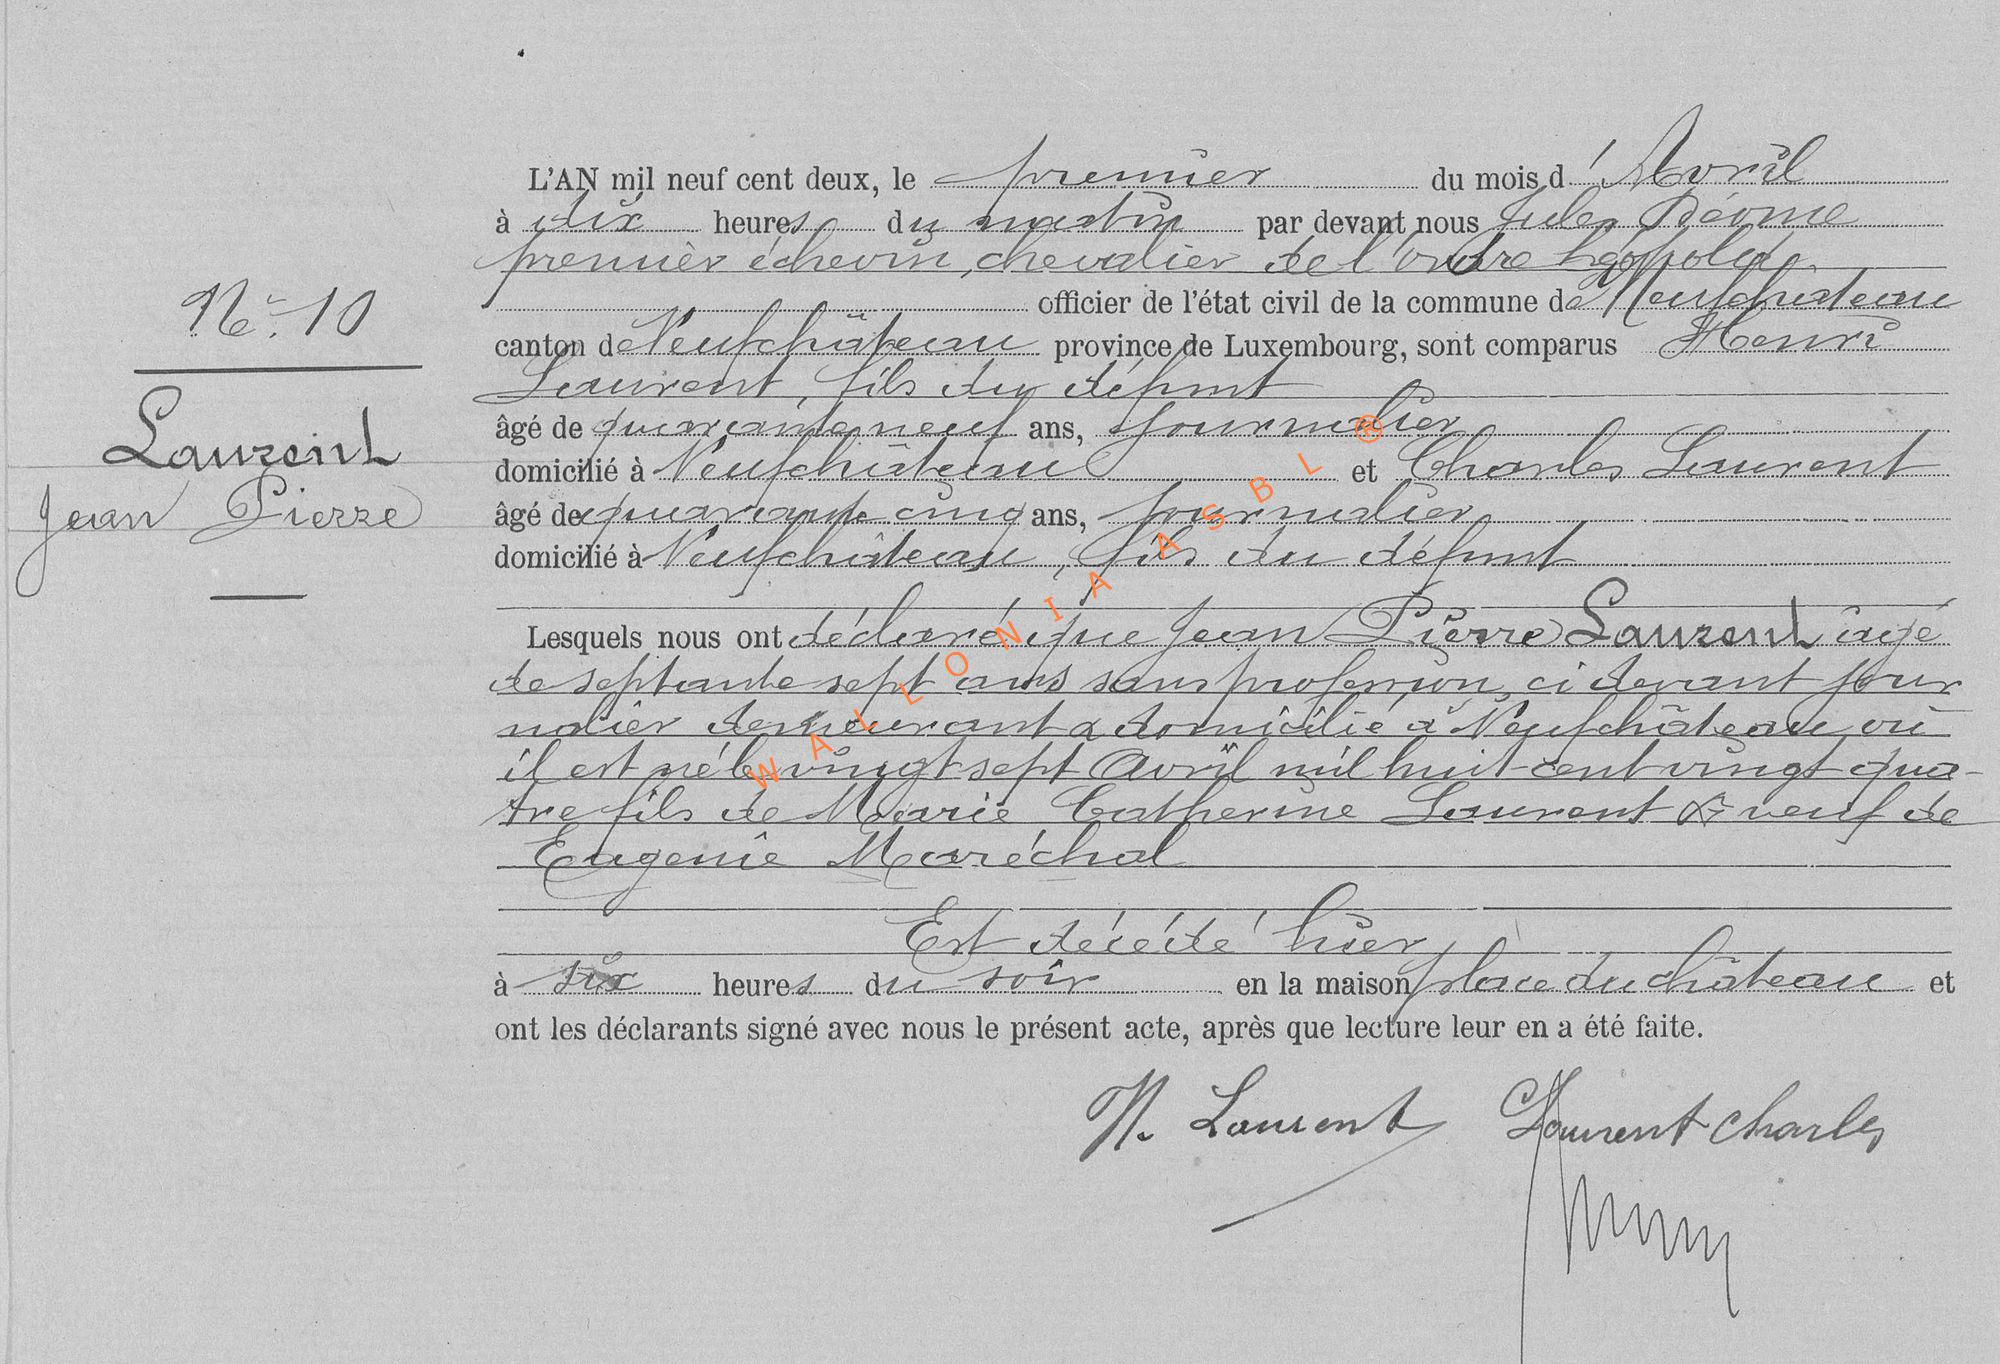 L'AN mil neuf cent deux, le premier du mois d'Avril
à dix heures du matin par devant nous Jules Déome
premier échevin, chevalier de l'ordre Léopold,
officier de l'état civil de la commune de Neufchateau
Nº 10
canton de Neufchâteau province de Luxembourg, sont comparus Henri
Laurent, fils du défunt
âgé de quarante neuf ans, journalier
Laurent
domicilié à Neufchâteau et Charles Laurent
Jean Pierre
âgé de quarante cinq ans, journalier
domicilié à Neufchâteau, fils du défunt
Lesquels nous ont déclaré que Jean Pierre Laurent âgé
de septante sept ans sans profession, ci devant jour
nalier demeurant & domicilié à Neufchâteau où
il est né le vingt sept Avril mil huit cent vingt qua-
tre fils de Marie Catherine Laurent & veuf de
Eugenie Maréchal
Est décédé hier
à six heures du soir en la maison place du château et
ont les déclarants signé avec nous le présent acte, après que lecture leur en a été faite.
H. Laurent Laurent Charles
WALLONIA ASBL ®